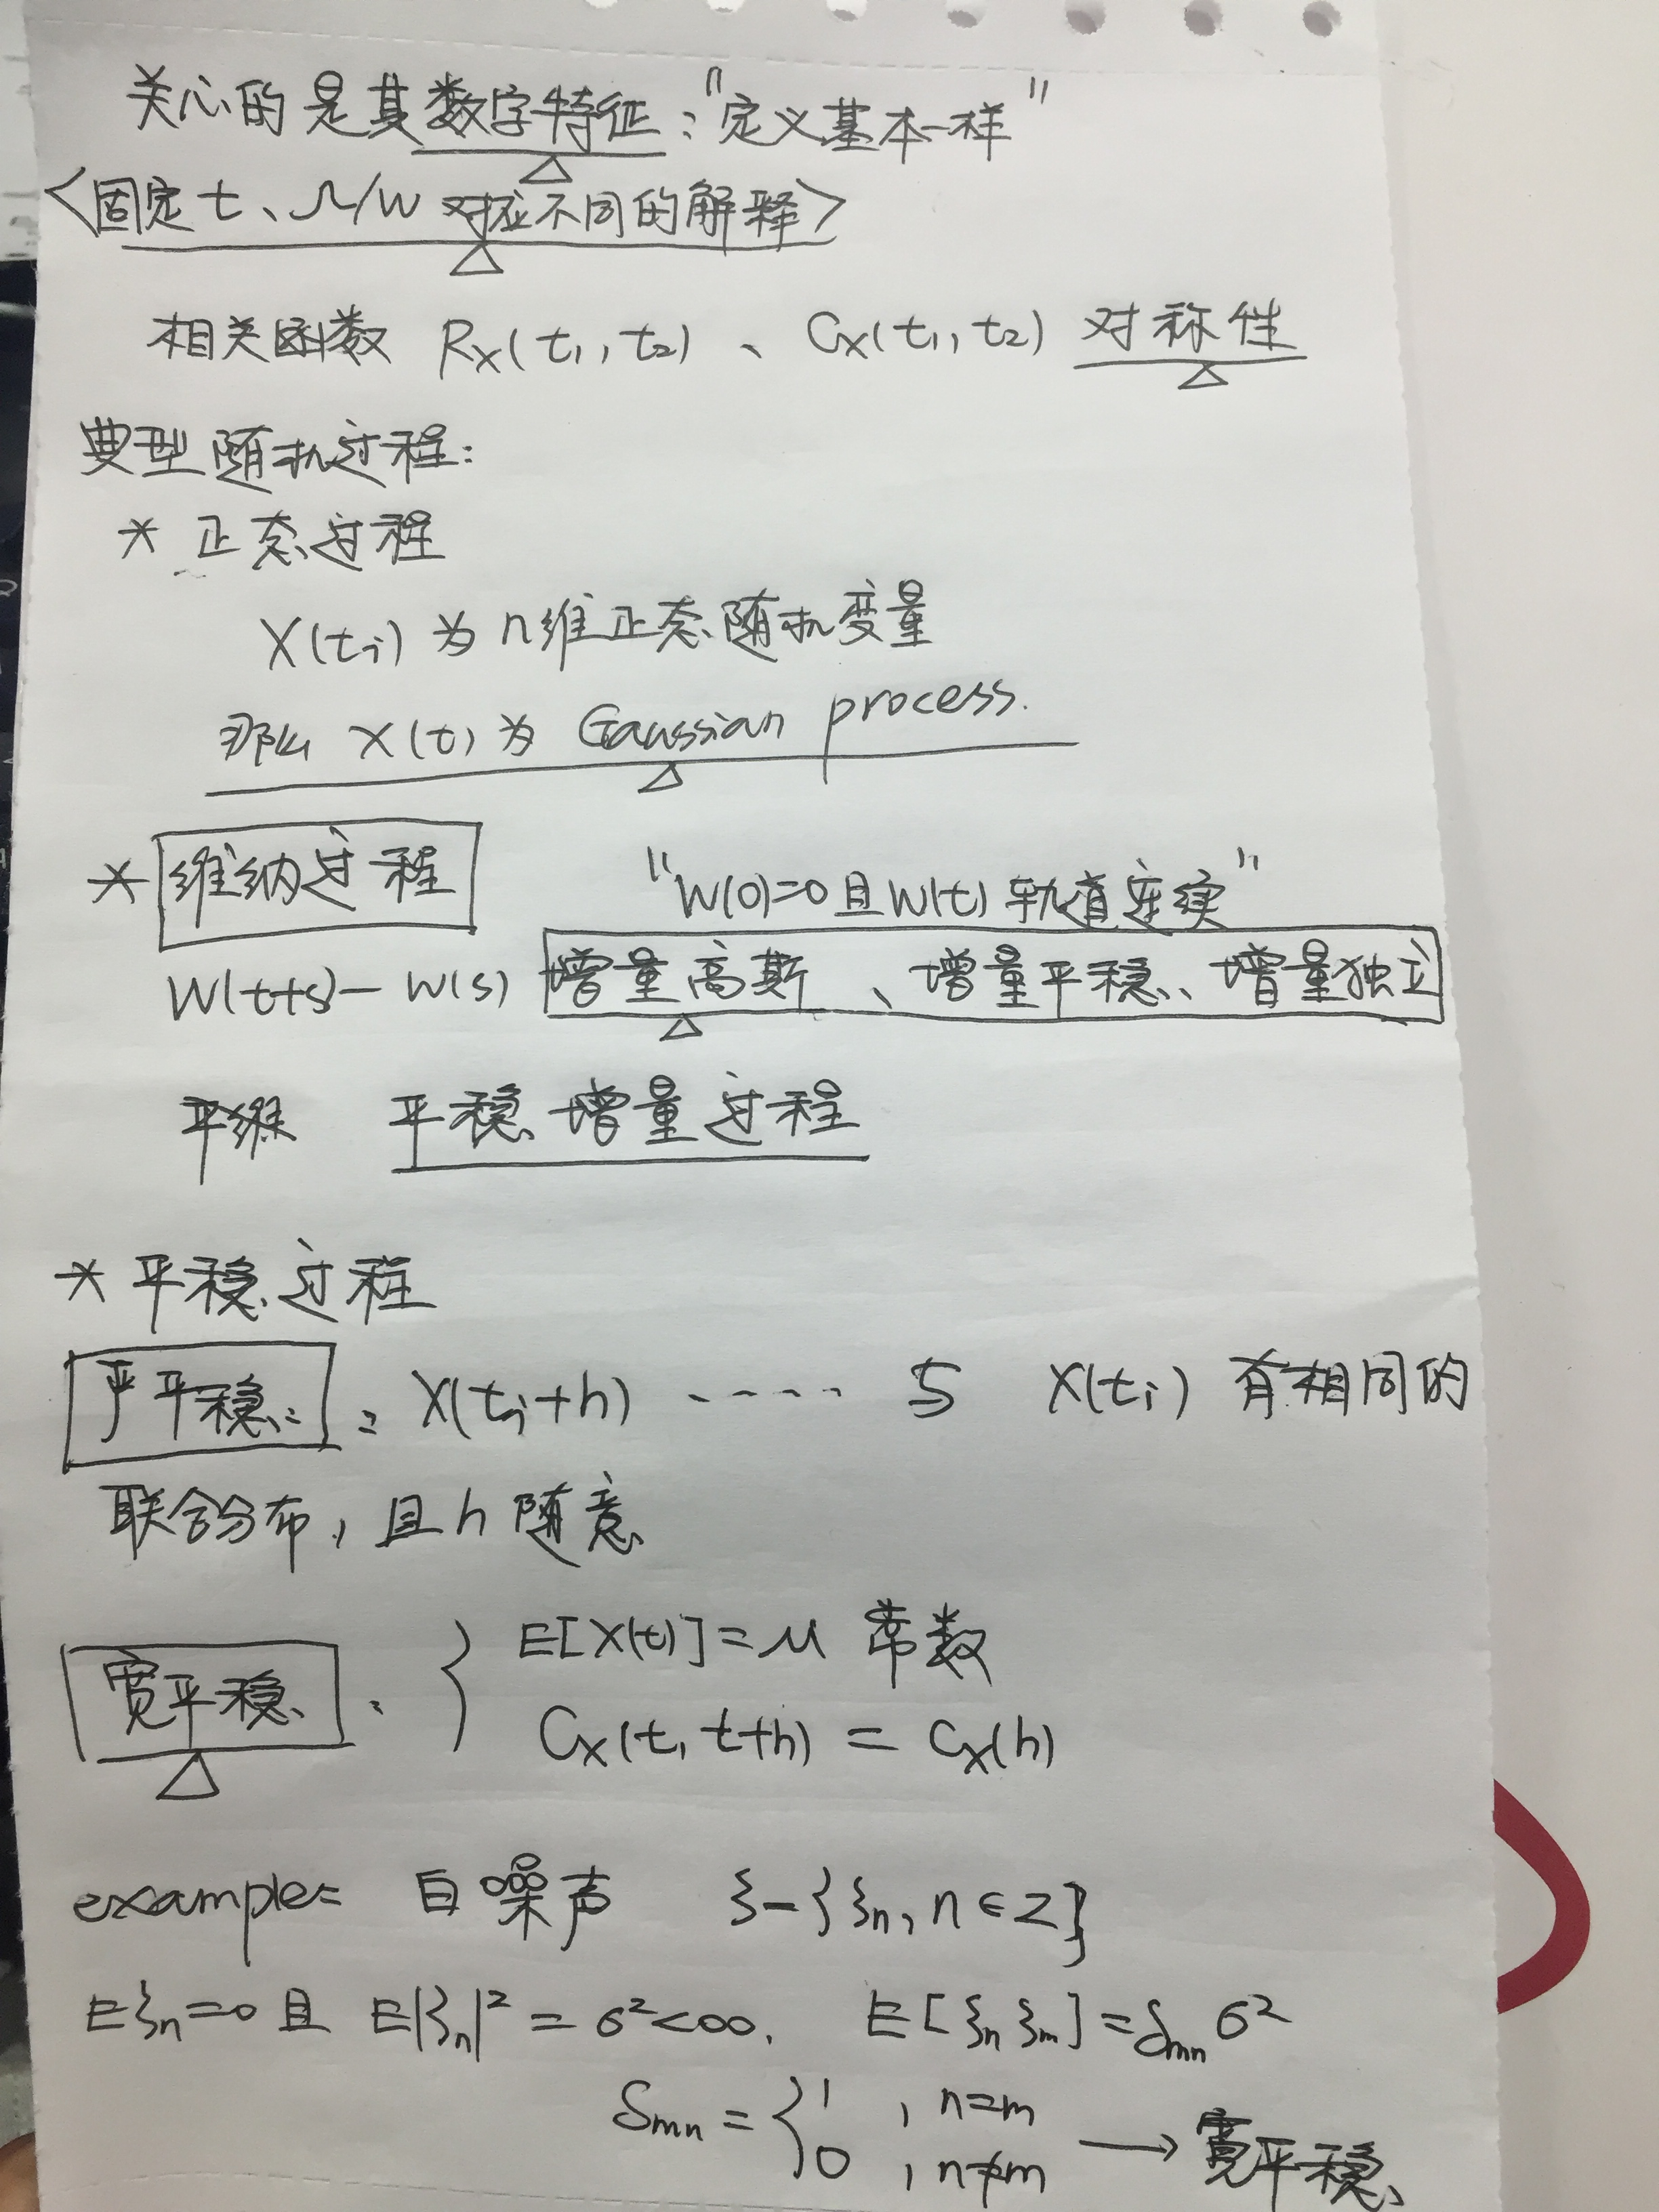 关心的是其数字特征："定义基本一样"
<固定t、Ω/w 对应不同的解释>
相关函数 Rx(t1, t2) 、 Cx(t1, t2) 对称性
典型随机过程:
* 正态过程
X(ti) 为 n维正态随机变量
那么 X(t) 为 Gaussian process.
* 维纳过程 "W(0)=0 且 W(t) 轨道连续"
W(t+s) - W(s) 增量高斯、增量平稳、增量独立
平稳增量过程
* 平稳过程
严平稳: X(ti+h) ----- 与 X(ti) 有相同的
联合分布, 且h 随意
宽平稳: { E[X(t)] = μ 常数
Cx(t, t+h) = Cx(h)
example: 白噪声 ξ-{ξn, n∈Z}
Eξn=0 且 E|ξn|² = σ²<∞. E[ξn ξm] = δmn σ²
δmn = { 1 , n=m
0 , n≠m → 宽平稳